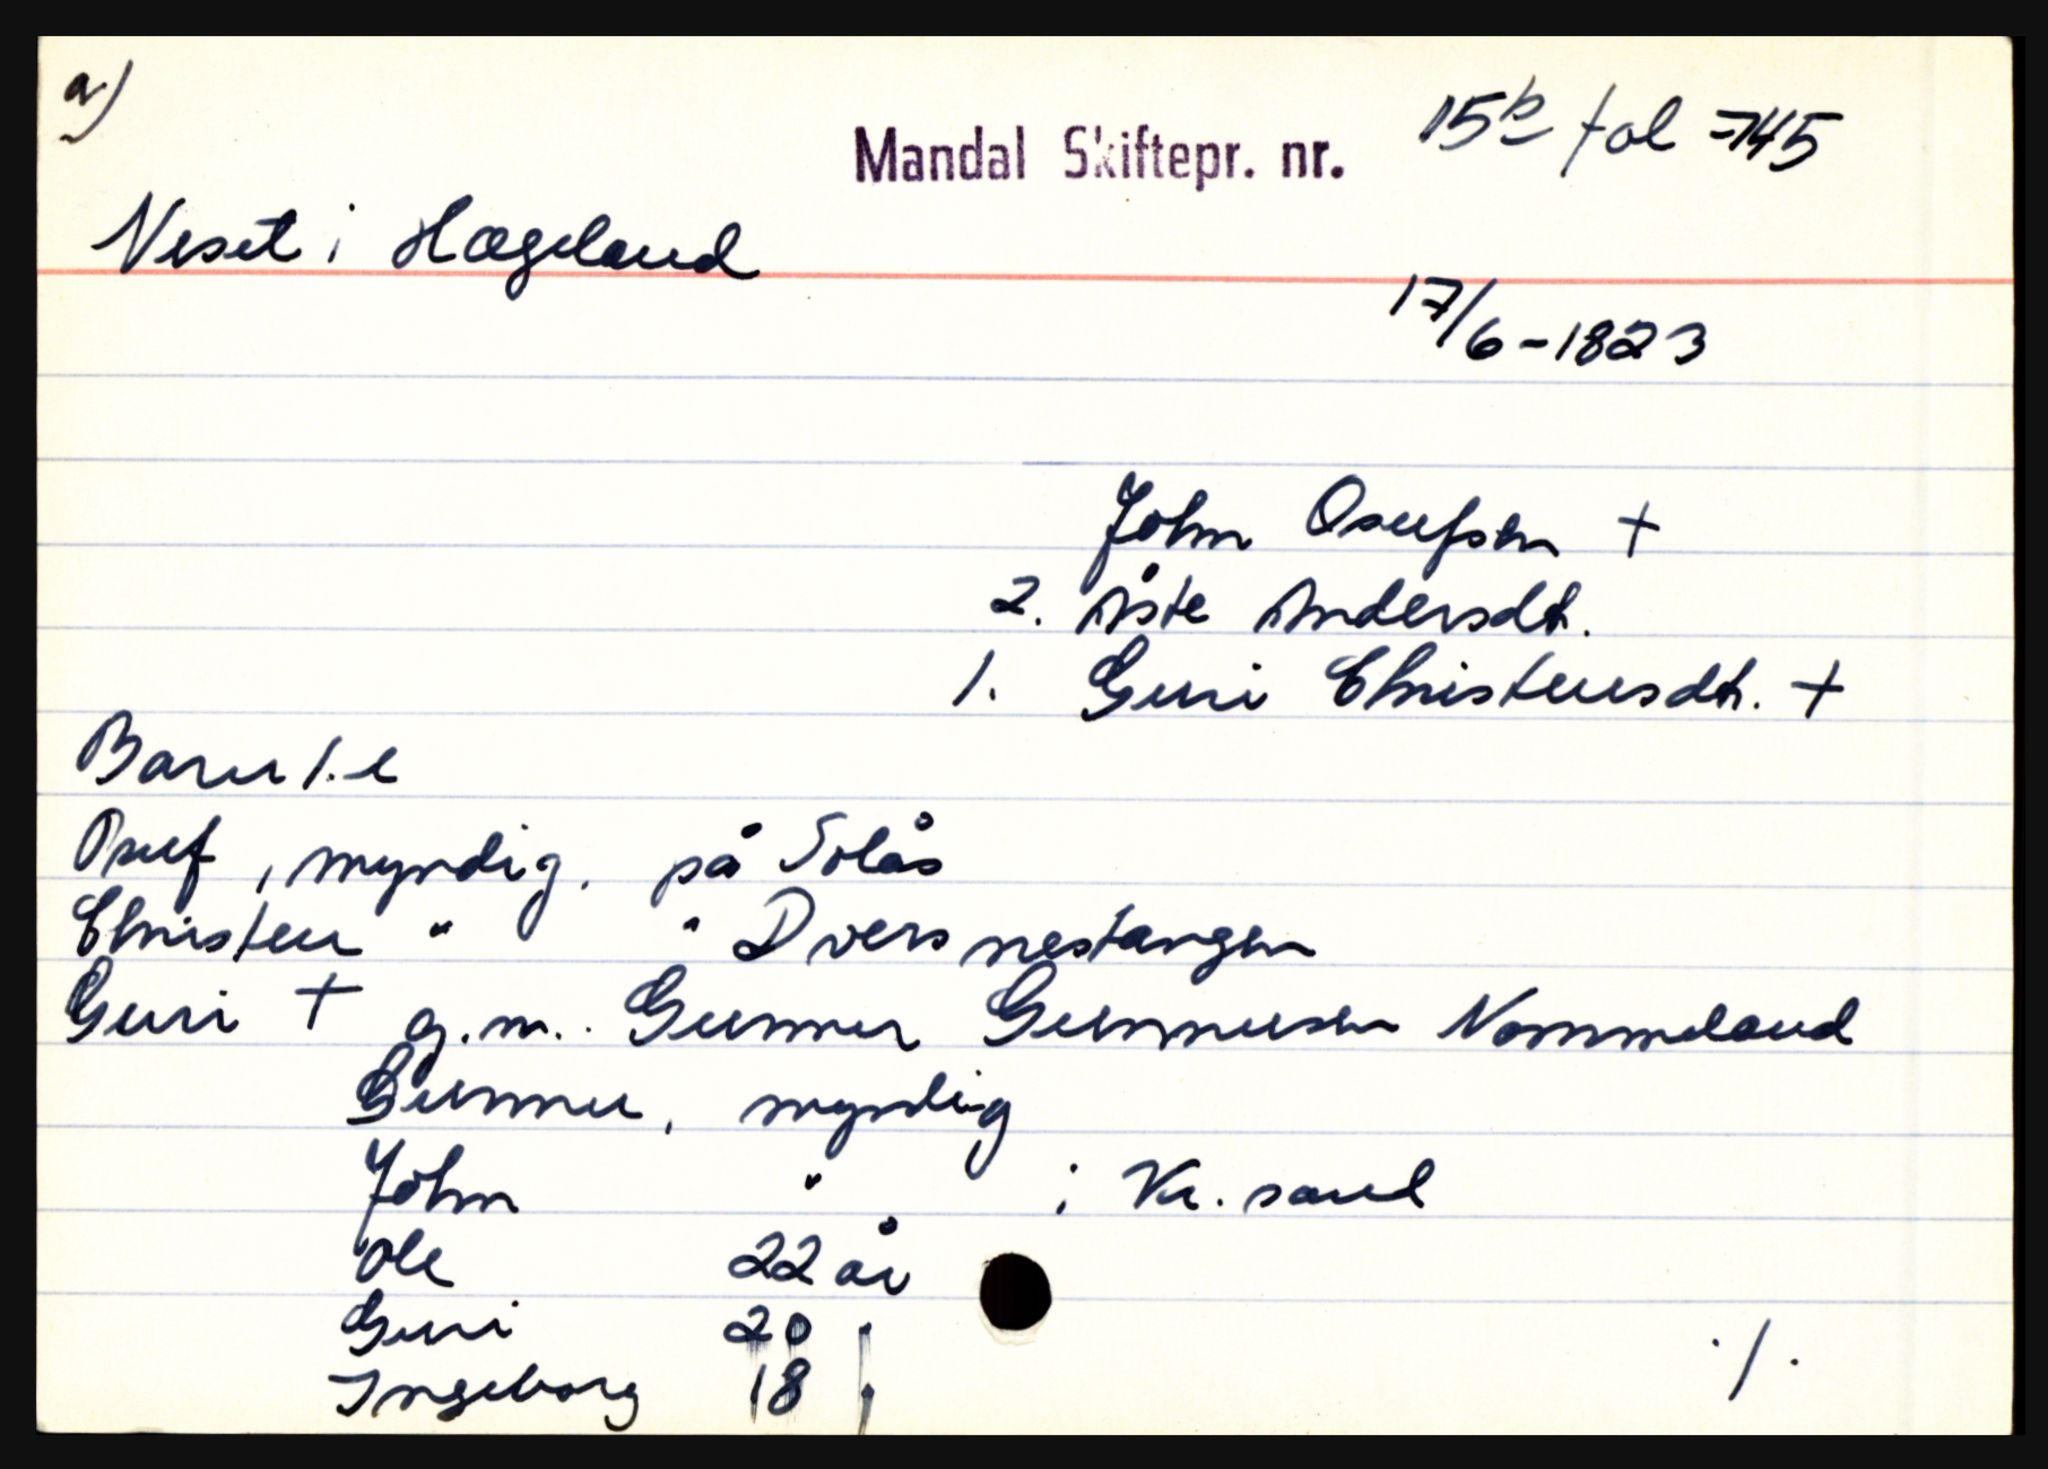 a)
Mandal Skiftepr. nr. 15b fol 745
Neset i Hægeland
17/6-1823
John Osufsen +
2. Åste Andersdt.
1. Guri Christensdt. +
Barn 1.e
Osuf, myndig, på Solås
Christen " " Dversnestangen
Guri + g.m. Gunner Gunnersen Nommeland
Gunner, myndig
John " i Kr.sand
Ole 22 år
Guri 20 "
Ingeborg 18 "
./.